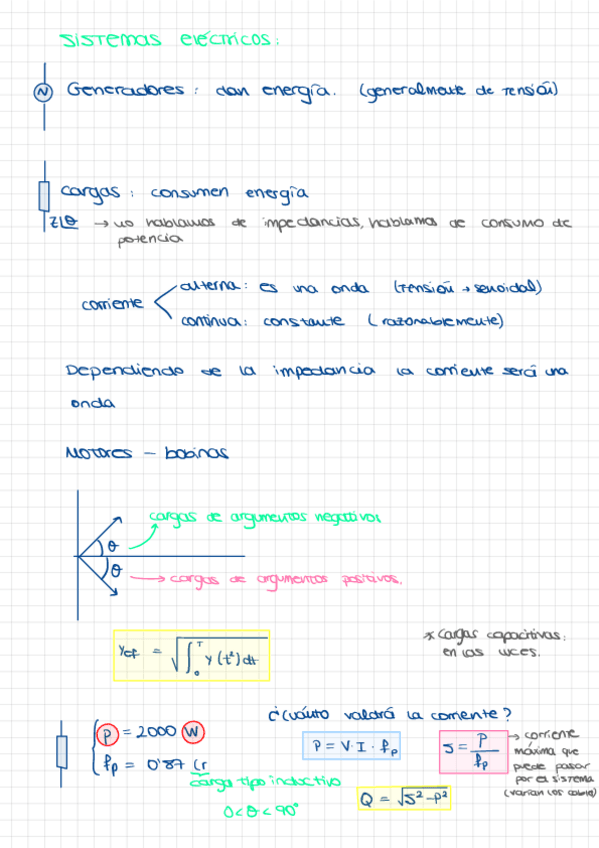 sistemas eléctricos:
N Generadores: dan energía. (generalmente de tensión)
cargas: consumen energía
Z|θ → no hablamos de impedancias, hablamos de consumo de
potencia
corriente
alterna: es una onda (tensión → senoidal)
continua: constante (razonablemente)
Dependiendo de la impedancia la corriente será una
onda
MOTORES - bobinas
cargas de argumentos negativos
θ
θ
→ cargas de argumentos positivos.
Yef = √∫₀ᵀ Y(t²)dt
* cargas capacitivas:
en las luces.
¿Cuánto valdrá la corriente?
P = 2000 W
fp = 0'87 (r
carga tipo inductivo
0<θ<90°
P = V·I·fp
S = P/fp
→ corriente
máxima que
puede pasar
por el sistema
(varían los cables)
Q = √S²-P²